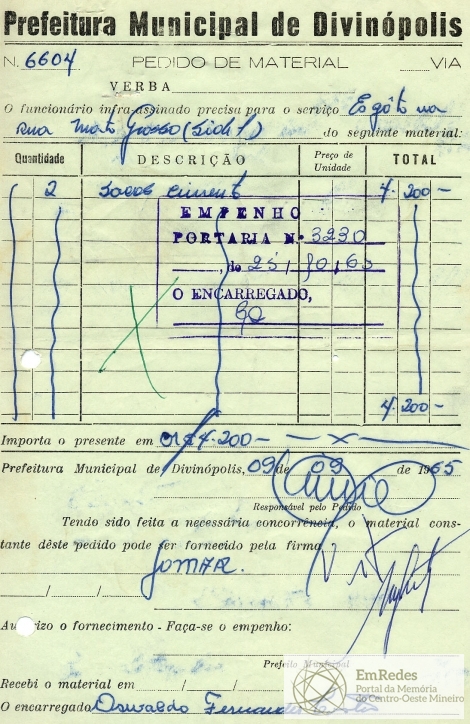 Prefeitura Municipal de Divinópolis
N. 6604 PEDIDO DE MATERIAL VIA
VERBA
O funcionário infra-assinado precisa para o serviço Esgôto na
rua Mato Grosso do seguinte material:
Quantidade DESCRIÇÃO Preço de Unidade TOTAL
2 sacos ciment 4.200-
EMPENHO
PORTARIA N. 3230
de 25/10/65
O ENCARREGADO,
4.200-
Importa o presente em Cr$ 4.200- x
Prefeitura Municipal de Divinópolis, 09 de 09 de 1965
Responsável pelo Pedido
Tendo sido feita a necessária concorrência, o material cons-
tante dêste pedido pode ser fornecido pela firma
JOMAR.
/ /
Autorizo o fornecimento - Faça-se o empenho:
Prefeito Municipal
Recebi o material em / /
O encarregado Oswaldo Fernandes
EmRedes
Portal da Memória
do Centro-Oeste Mineiro